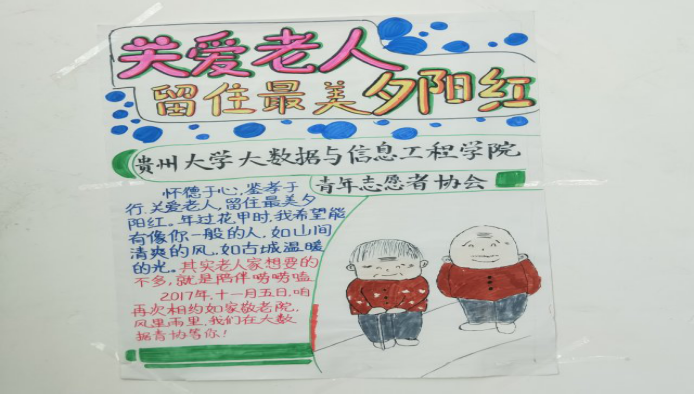 关爱老人
留住最美夕阳红
贵州大学大数据与信息工程学院
青年志愿者协会
怀德于心,鉴孝于
行.关爱老人,留住最美夕
阳红。年过花甲时,我希望能
有像你一般的人,如山间
清爽的风,如古城温暖
的光。其实老人家想要的
不多,就是陪伴唠唠嗑
2017年.十一月五日.咱
再次相约如家敬老院,
风里雨里,我们在大数
据青协等你!